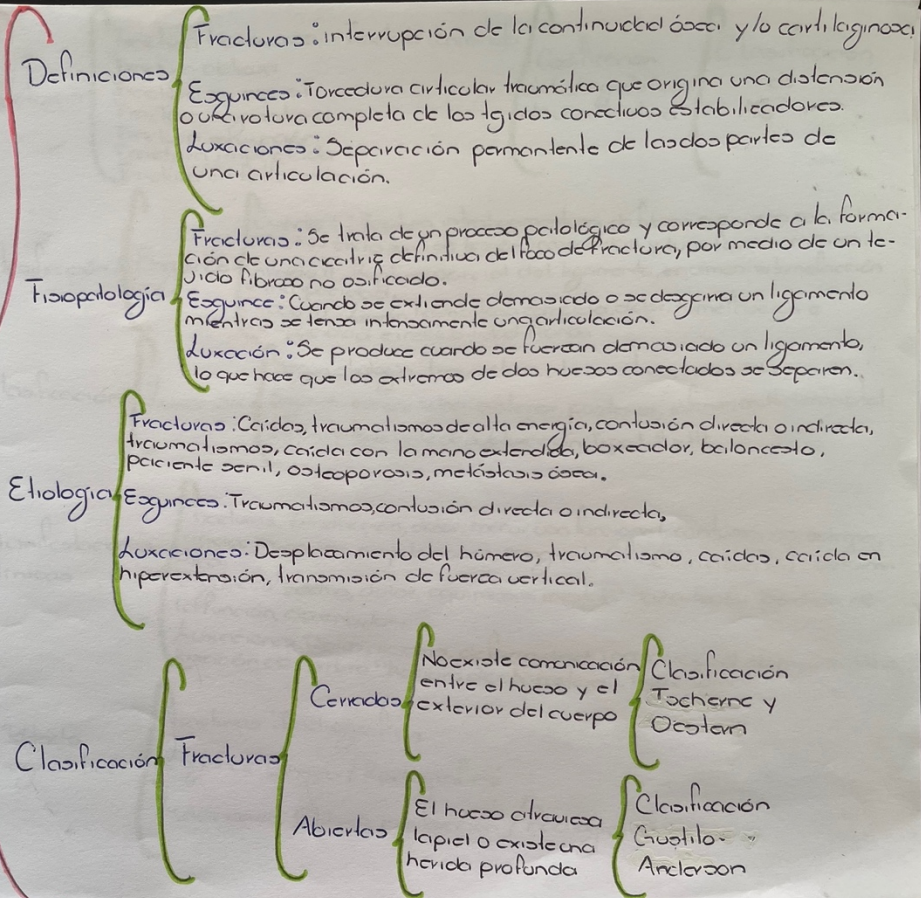 Definiciones
Fracturas: interrupción de la continuidad ósea y/o cartilaginosa
Esguinces: Torcedura articular traumática que origina una distensión
o una rotura completa de los tejidos conectivos estabilizadores.
Luxaciones: Separación permantente de las dos partes de
una articulación.
Fisiopatología
Fracturas: Se trata de un proceso patológico y corresponde a la forma-
ción de una cicatriz definitiva del foco de fractura, por medio de un te-
jido fibroso no osificado.
Esguince: Cuando se extiende demasiado o se desgarra un ligamento
mientras se tensa intensamente una articulación.
Luxación: Se produce cuando se fuerzan demasiado un ligamento,
lo que hace que los extremos de dos huesos conectados se separen.
Etiología
Fracturas: Caidas, traumatismos de alta energía, contusión directa o indirecta,
traumatismos, caída con la mano extendida, boxeador, baloncesto,
paciente senil, osteoporosis, metástasis ósea.
Esguinces: Traumatismos, contusión directa o indirecta,
Luxaciones: Desplazamiento del húmero, traumatismo, caídas, caída en
hiperextensión, transmisión de fuerza vertical.
Clasificación
Fracturas
Cerradas
No existe comunicación
entre el hueso y el
exterior del cuerpo
Clasificación
Tscherne y
Oestern
Abiertas
El hueso atraviesa
la piel o existe una
herida profunda
Clasificación
Gustilo-
Anderson